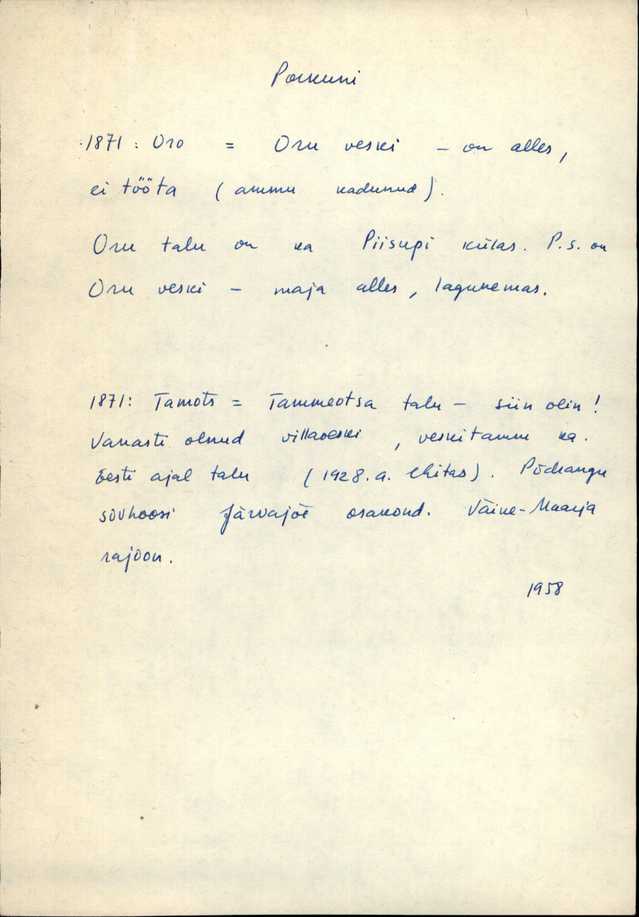 Porkuni
1871: Oro = Oru veski – on alles,
ei tööta (ammu kadunud).
Oru talu on ka Piisupi külas. P.s. on
Oru veski – maja alles, lagunemas.
1871: Tamots = Tammeotsa talu – siin olin!
Vanasti olnud villaveski, veskitamm ka.
Eesti ajal talu (1928.a. ehitas). Põdrangu
sovhoosi Järvajõe osakond. Väike-Maarja
rajoon.
1958